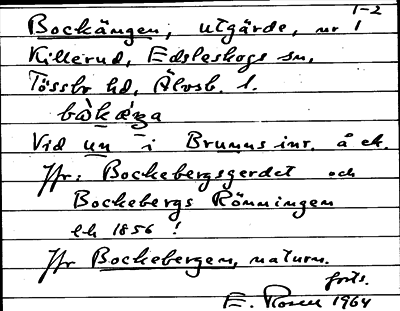 1-2
Bockängen, utgärde, nr 1
Killerud, Edsleskogs sn,
Tössbo hd, Älvsb. l.
Vid un i Brunns inr. å ek.
Jfr: Bockebergsgerdet och
Bockebergs Rönningen
lh 1856 !
Jfr Bockebergen, naturn.
forts.
E. Rosen 1964